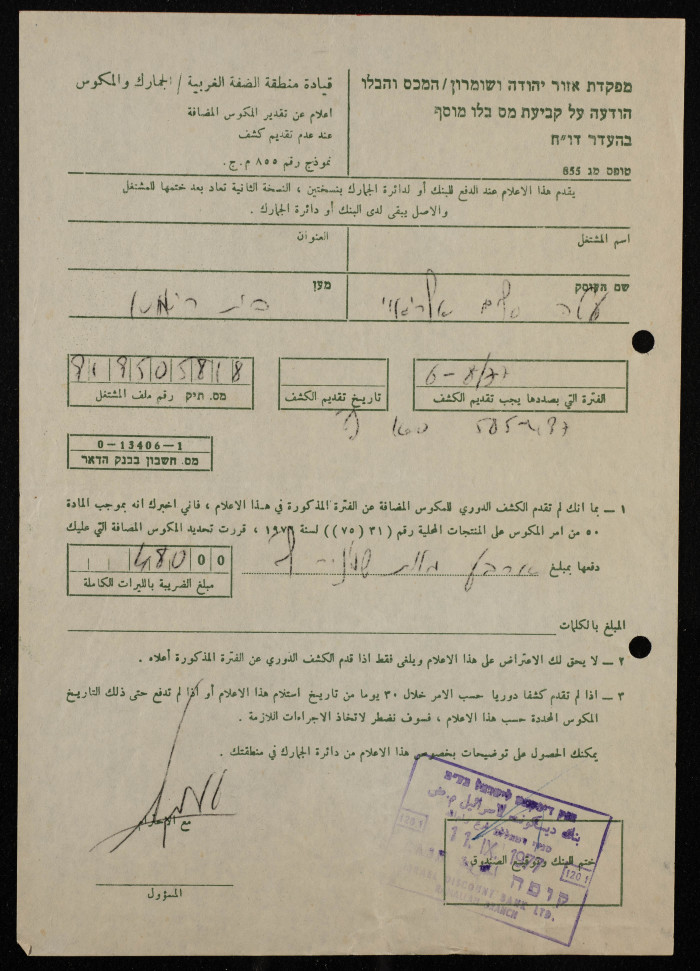 מפקדת אזור יהודה ושומרון/המכס והבלו
הודעה על קביעת מס בלו מוסף
בהעדר דו״ח
טופס מג 855
قيادة منطقة الضفة الغربية / الجمارك والمكوس
اعلام عن تقدير المكوس المضافة
عند عدم تقديم كشف
نموذج رقم ٨٥٥ م.ج.
يقدم هذا الاعلام عند الدفع للبنك أو لدائرة الجمارك بنسختين ، النسخة الثانية تعاد بعد ختمها للمشتغل
والاصل يبقى لدى البنك أو دائرة الجمارك .
اسم المشتغل
العنوان
שם העוסק
מען
6-8/77
الفترة التي بصددها يجب تقديم الكشف
تاريخ تقديم الكشف
מס. תיק رقم ملف المشتغل
0-13406-1
מס. חשבון בבנק הדאר
١ ــ بما انك لم تقدم الكشف الدوري للمكوس المضافة عن الفترة المذكورة في هذا الاعلام ، فاني اخبرك انه بموجب المادة
٥٠ من امر المكوس على المنتجات المحلية رقم (٣١ (٧٥)) لسنة ١٩٧٦ ، قررت تحديد المكوس المضافة التي عليك
دفعها بمبلغ ארבע מאות שמונים
480 00
مبلغ الضريبة بالليرات الكاملة
المبلغ بالكلمات
٢ ــ لا يحق لك الاعتراض على هذا الاعلام ويلغى فقط اذا قدم الكشف الدوري عن الفترة المذكورة أعلاه .
٣ ــ اذا لم تقدم كشفا دوريا حسب الامر خلال ٣٠ يوما من تاريخ استلام هذا الاعلام أو اذا لم تدفع حتى ذلك التاريخ
المكوس المحددة حسب هذا الاعلام ، فسوف نضطر لاتخاذ الاجراءات اللازمة .
يمكنك الحصول على توضيحات بخصوص هذا الاعلام من دائرة الجمارك في منطقتك .
مع الاحترام
المسؤول
ختم البنك وتوقيع الصندوق
בנק דיסקונט לישראל בע״מ
بنك ديسكونت لاسرائيل م.ض
120.1
11. IX 1977
120.1
קופה
ISRAEL DISCOUNT BANK LTD.
BRANCH